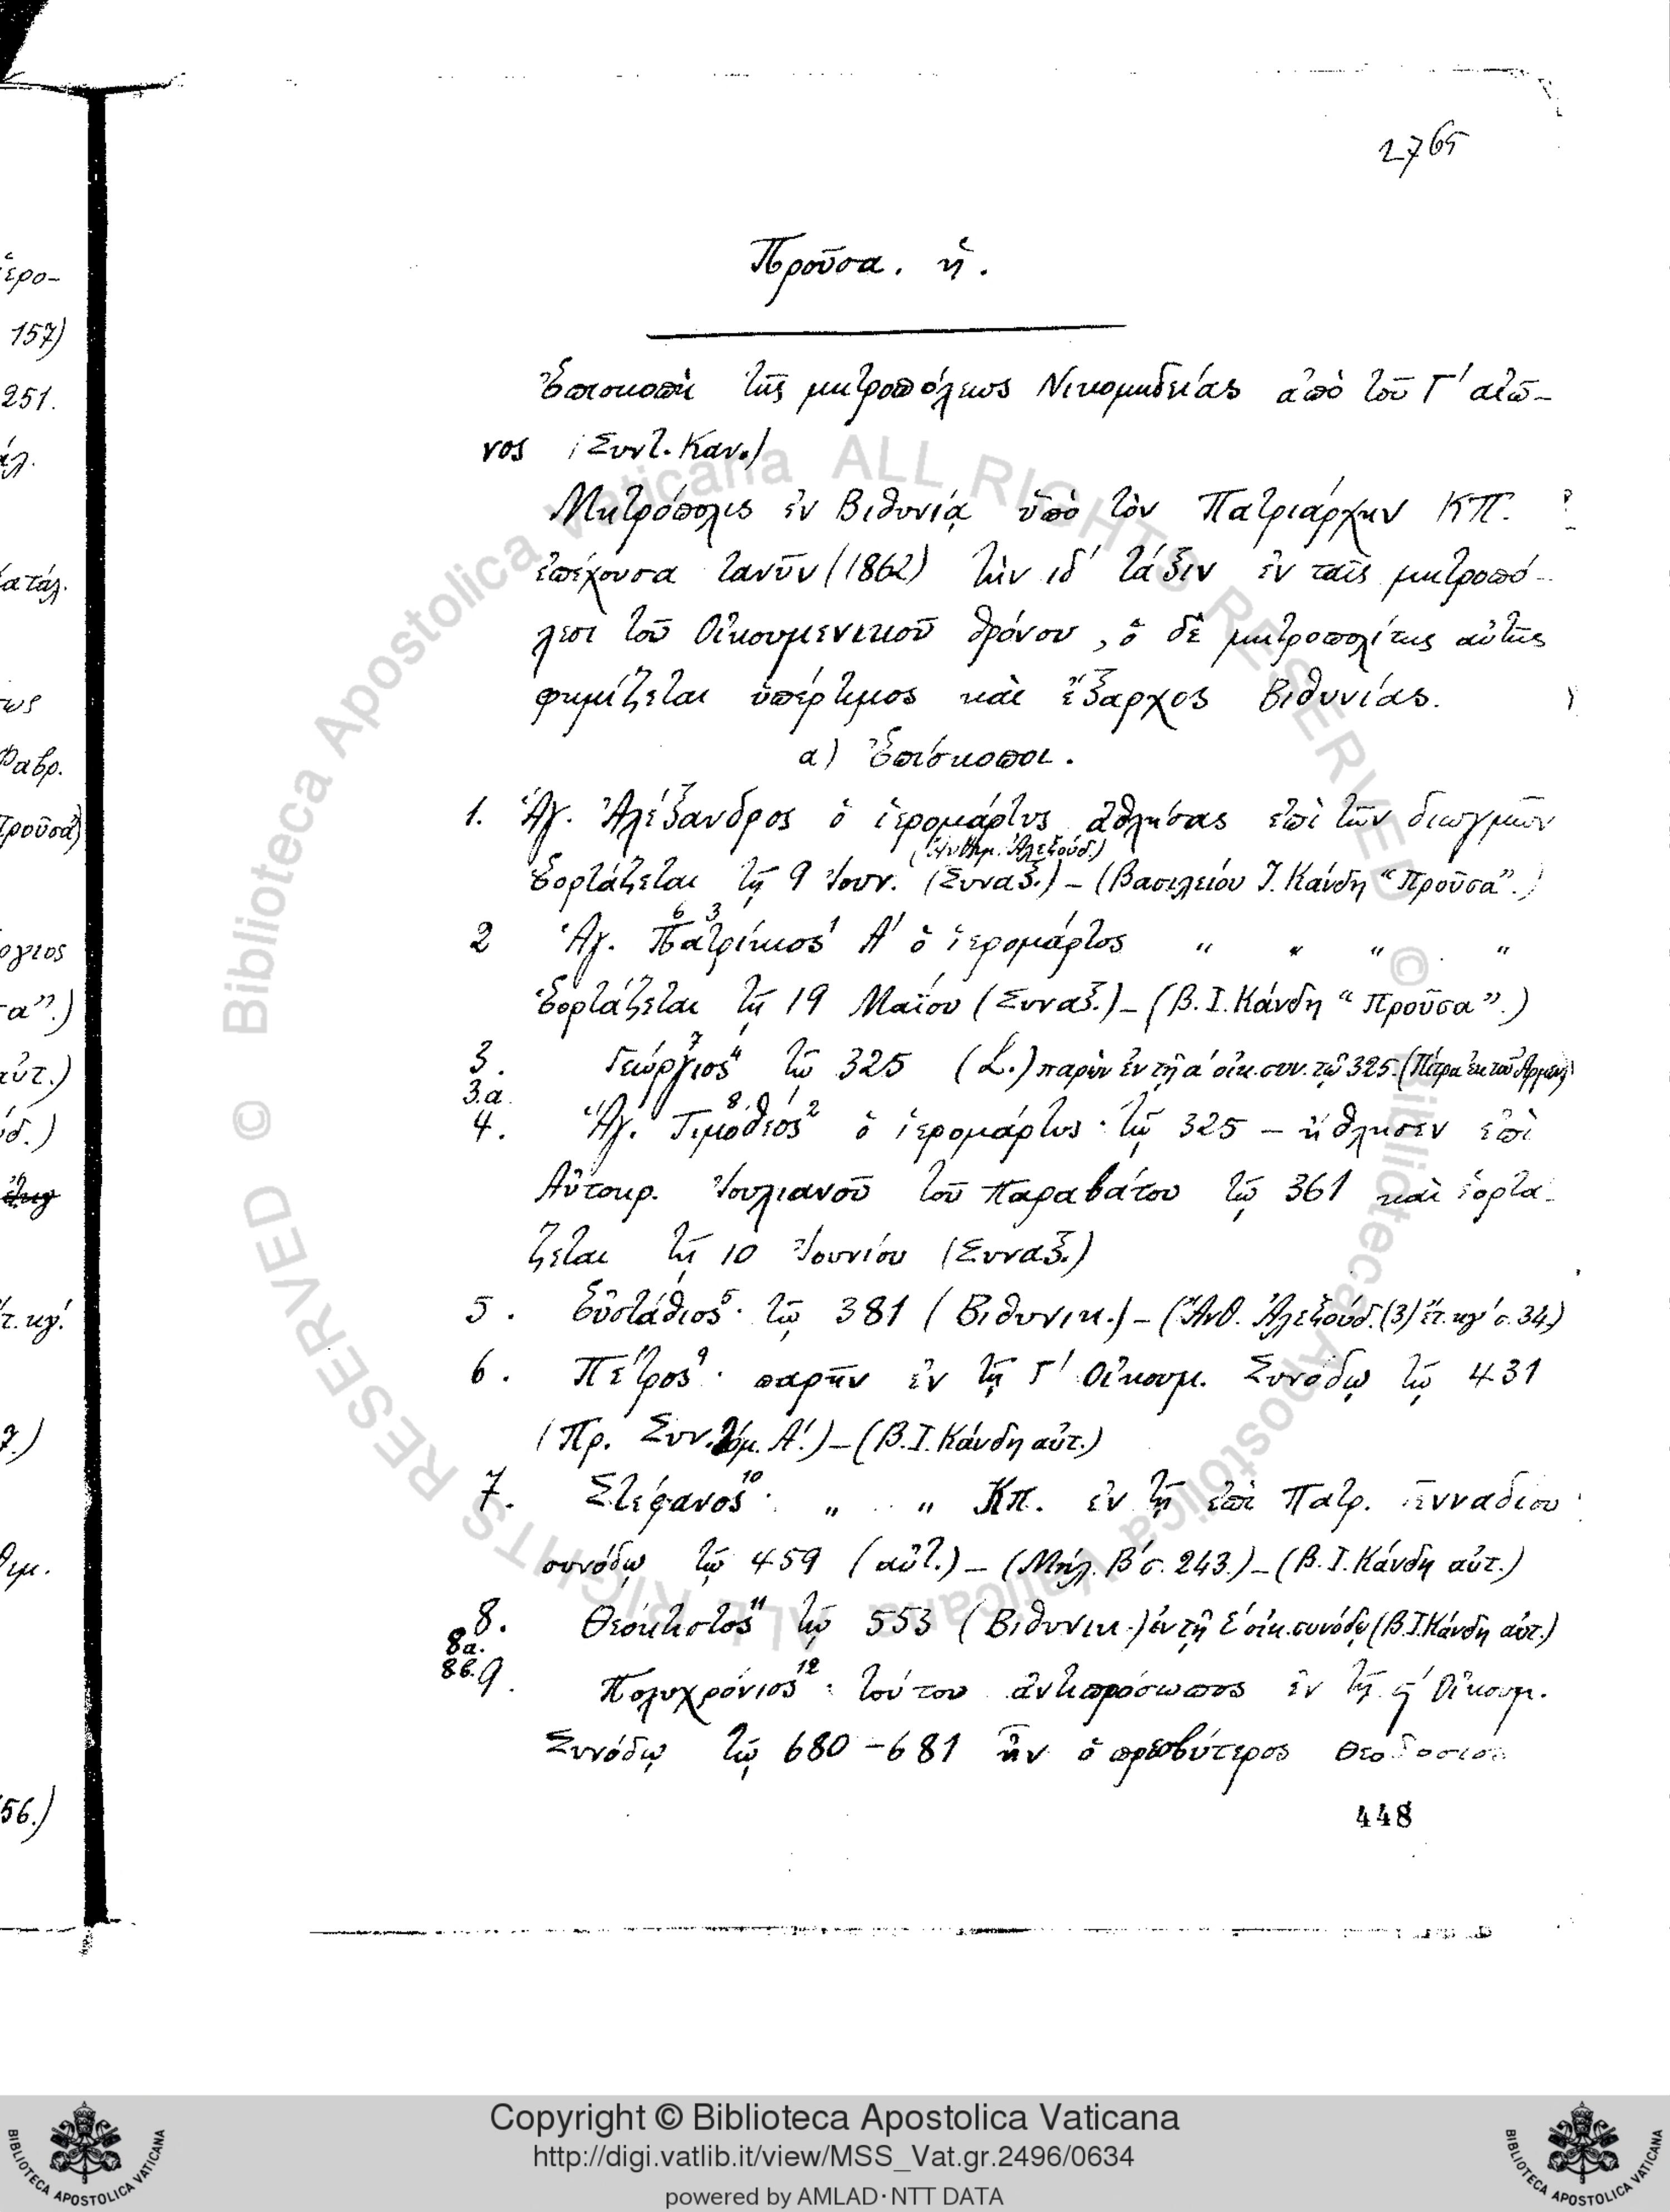 2765
Προῦσα. ἡ.
Ἐπισκοπὴ τῆς μητροπόλεως Νικομηδείας ἀπὸ τοῦ Γ' αἰῶ-
νος (Συντ. Καν.)
Μητρόπολις ἐν Βιθυνίᾳ ὑπὸ τὸν Πατριάρχην ΚΠ.
ἐπέχουσα τανῦν (1862) τὴν ιδ' τάξιν ἐν ταῖς μητροπό-
λεσι τοῦ Οἰκουμενικοῦ θρόνου, ὁ δὲ μητροπολίτης αὐτῆς
φημίζεται ὑπέρτιμος καὶ ἔξαρχος Βιθυνίας.
α) Ἐπίσκοποι.
1. Ἁγ. Ἀλέξανδρος ὁ ἱερομάρτυς ἀθλήσας ἐπὶ τῶν διωγμῶν
Ἀλεξούδ.)
ἑορτάζεται τῇ 9 Ἰουν. (Συναξ.) - (Βασιλείου Ι. Κάνδη "Προῦσα".)
2 Ἁγ. Πατρίκιος Α' ὁ ἱερομάρτυς " " " "
ἑορτάζεται τῇ 19 Μαΐου (Συναξ.) - (Β. Ι. Κάνδη "Προῦσα".)
3. Γεώργιος τῷ 325 (L.) παρὼν ἐν τῇ α' οἰκ. συν. τῷ 325.
3.a.
4. Ἁγ. Τιμόθεος ὁ ἱερομάρτυς· τῷ 325 - ἤθλησεν ἐπὶ
Αὐτοκρ. Ἰουλιανοῦ τοῦ Παραβάτου τῷ 361 καὶ ἑορτά-
ζεται τῇ 10 Ἰουνίου (Συναξ.)
5. Εὐστάθιος· τῷ 381 (Βιθυνικ.) - (Ἀνθ. Ἀλεξούδ. (3) ἔτ. κγ' σ. 34.)
6. Πέτρος⁹· παρῆν ἐν τῇ Γ' Οἰκουμ. Συνόδῳ τῷ 431
(Πρ. Συν. Τόμ. Α'.) - (Β. Ι. Κάνδη αὐτ.)
7. Στέφανος¹⁰· " " Κπ. ἐν τῇ ἐπὶ Πατρ. Γενναδίου
συνόδῳ τῷ 459 (αὐτ.) - (Μηλ. Β' σ. 243.) - (Β. Ι. Κάνδη αὐτ.)
8. Θεόκτιστος¹¹ τῷ 553 (Βιθυνικ.) ἐν τῇ Ε' οἰκ. συνόδῳ (Β. Ι. Κάνδη αὐτ.)
8a.
8β. 9. Πολυχρόνιος¹²· τούτου ἀντιπρόσωπος ἐν τῇ ς' Οἰκουμ.
Συνόδῳ τῷ 680-681 ἦν ὁ πρεσβύτερος Θεοδόσιος
448
ἱερο-
157)
251.
Κατάλ.
Φαβρ.
Προῦσα)
αὐτ.)
ἔτ. κγ'.
56.)
© Biblioteca Apostolica Vaticana ALL RIGHTS RESERVED © Biblioteca Apostolica Vaticana ALL RIGHTS RESERVED
Copyright © Biblioteca Apostolica Vaticana
http://digi.vatlib.it/view/MSS_Vat.gr.2496/0634
powered by AMLAD·NTT DATA
BIBLIOTECA APOSTOLICA VATICANA
BIBLIOTECA APOSTOLICA VATICANA